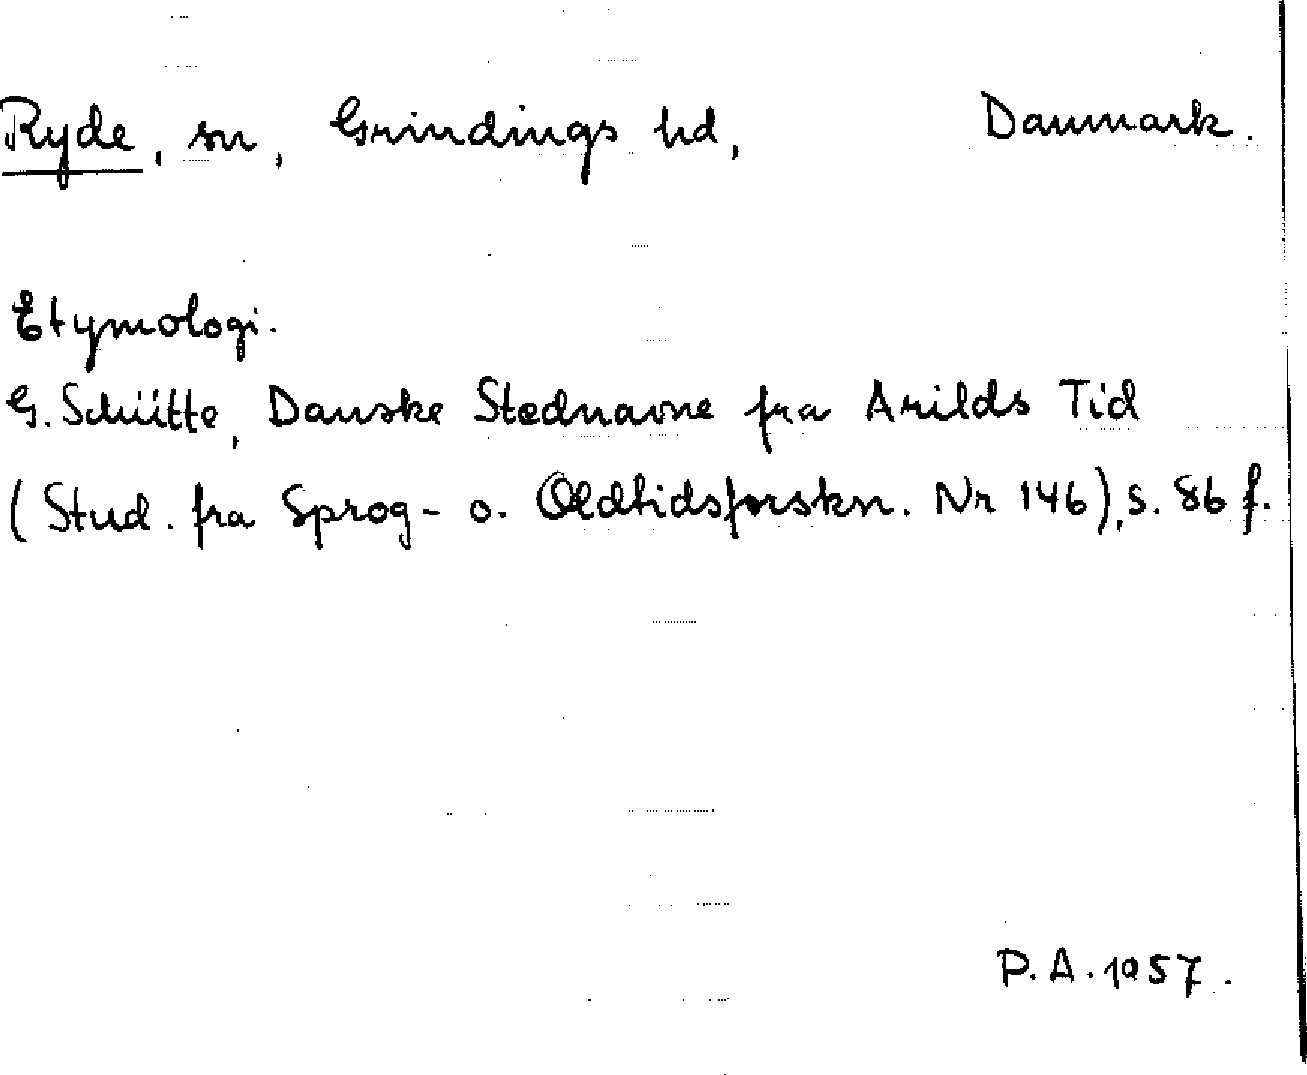 Ryde, sn, Grindings hd, Danmark.
Etymologi.
G. Schütte, Danske Stednavne fra Arilds Tid
(Stud. fra Sprog- o. Oldtidsforskn. Nr 146), s. 86 f.
P.A. 1957.